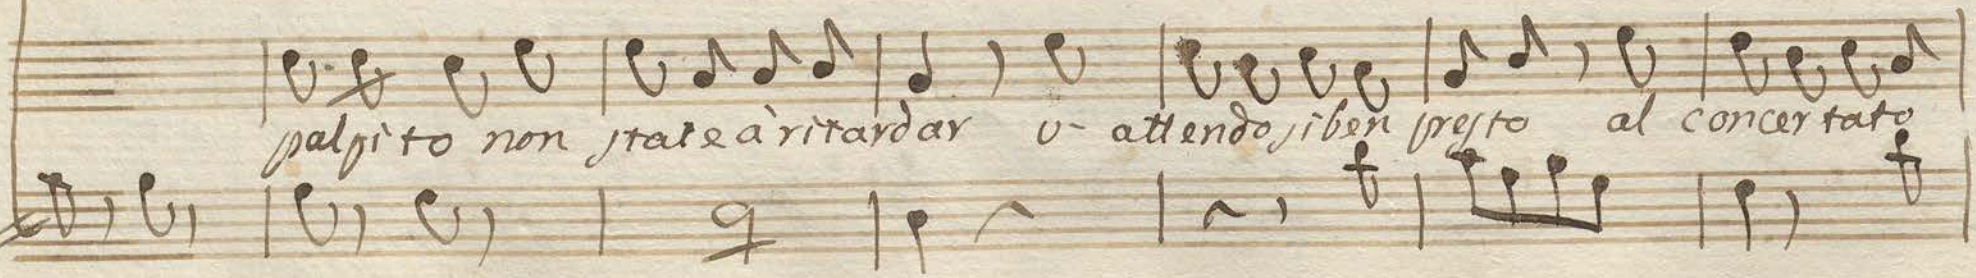 palpito non state à ritardar v'attendo sì ben presto al concertato